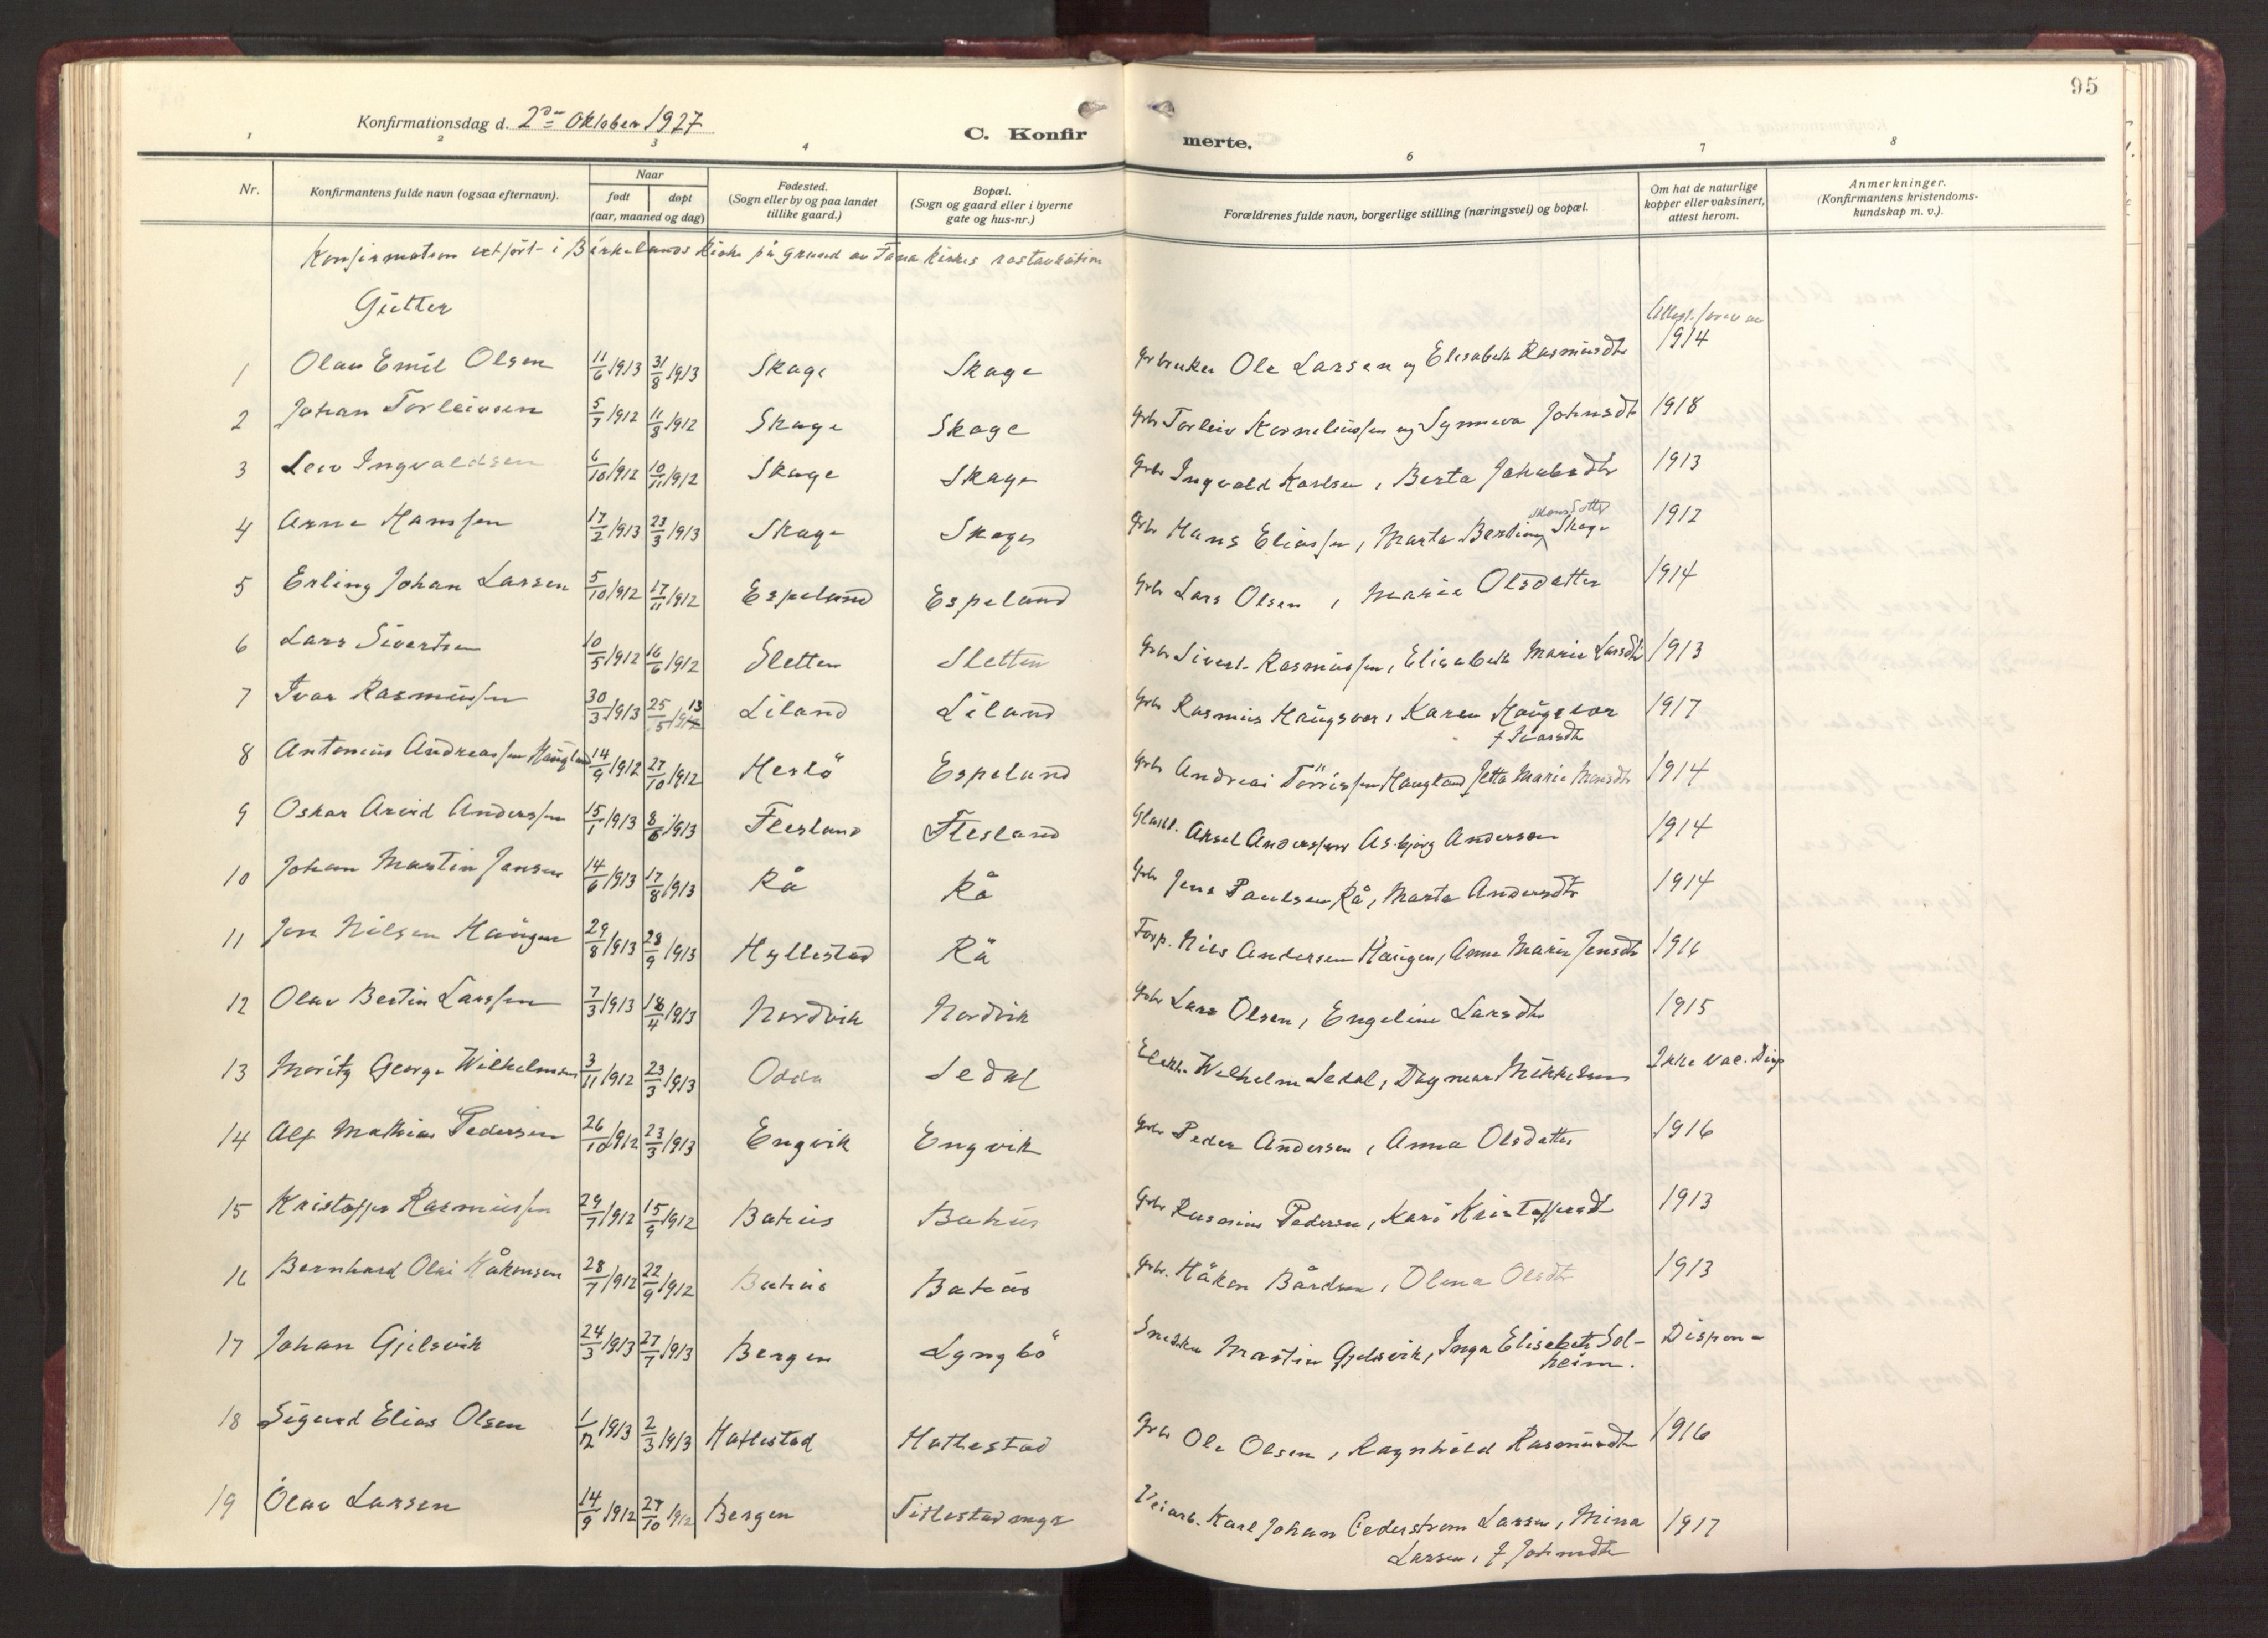 95
Konfirmationsdag d. 2den Oktober 1927
C. Konfirmerte.
1 2 3 4 6 7 8
Nr. Konfirmantens fulde navn (ogsaa efternavn). Naar født døpt (aar, maaned og dag) Fødested. (Sogn eller by og paa landet tillike gaard.) Bopæl. (Sogn og gaard eller i byerne gate og hus-nr.) Forældrenes fulde navn, borgerlige stilling (næringsvei) og bopæl. Om hat de naturlige kopper eller vaksinert, attest herom. Anmerkninger. (Konfirmantens kristendoms-kundskap m. v.).
Konfirmation utført i Birkelands Kirke på Grund av Fana Kirkes restauration
Gutter
1 Olav Emil Olsen 11/6 1913 31/8 1913 Skage Skage Grbruker Ole Larsen og Elisabeth Rasmusdtr 1914
2 Johan Torleivsen 5/7 1912 11/8 1912 Skage Skage Grbr Torleiv Korneliussen og Synneva Johnsdtr 1918
3 Leiv Ingvaldsen 6/10 1912 10/11 1912 Skage Skage Grbr Ingvald Karlsen, Berta Jakobsdtr 1913
4 Arne Hanssen 17/2 1913 23/3 1913 Skage Skage Grbr Hans Eliassen, Marta Bertine Skage 1912
5 Erling Johan Larsen 5/10 1912 17/11 1912 Espeland Espeland Grbr Lars Olsen, Marie Olsdatter 1914
6 Lars Sivertsen 10/5 1912 16/6 1912 Sletten Sletten Grbr Sivert Rasmussen, Elisabeth Marie Larsdtr 1913
7 Ivar Rasmussen 30/3 1913 25/5 1913 Liland Liland Grbr Rasmus Haugsvær, Karen Haugsvær f Ivarsdtr 1917
8 Antonius Andreassen Haugland 14/9 1912 27/10 1912 Herlö Espeland Grbr Andreas Törrissen Haugland Jetta Marie Monsdtr 1914
9 Oskar Arvid Anderssen 15/1 1913 8/6 1913 Flesland Flesland Aksel Anderssen Asbjørg Andersen 1914
10 Johan Martin Jensen 14/6 1913 17/8 1913 Rå Rå Grbr Jens Paulsen Rå, Marta Andersdtr 1914
11 Jon Nilsen Haugen 29/8 1913 28/9 1913 Hyllestad Rå Forp. Nils Andersen Haugen, Anne Marie Jensdtr 1916
12 Olav Bertin Larssen 7/3 1913 18/4 1913 Nordvik Nordvik Grbr Lars Olsen, Engeline Larsdtr 1915
13 Moritz George Wilhelmsen 3/11 1912 23/3 1913 Odda Sedal Elekt. Wilhelm Sedal, Dagmar Mikkelsen Ikke vac. Disp
14 Alf Mathias Pedersen 26/10 1912 23/3 1913 Engvik Engvik Grbr Peder Andersen, Anna Olsdatter 1916
15 Kristoffer Rasmussen 29/7 1912 15/9 1912 Bahus Bahus Grbr Rasmus Pedersen, Kari Kristoffersdt 1913
16 Bernhard Olai Håkonsen 28/7 1912 22/9 1912 Bahus Bahus Grbr. Håkon Bårdsen, Olena Olsdtr 1913
17 Johan Gjelsvik 24/3 1913 27/7 1913 Bergen Lyngbö Snekker Martin Gjelsvik, Inga Elisabeth Solheim. Dispen-
18 Sigurd Elias Olsen 1/12 1913 2/3 1913 Hatlestad Hatlestad Grbr Ole Olsen, Ragnhild Rasmusdtr 1916
19 Olav Larsen 14/9 1912 27/10 1912 Bergen Titlestadmyr Veiarb. Karl Johan Cederstrom Larsen, Mina Larsen, f Johnsdtr 1917